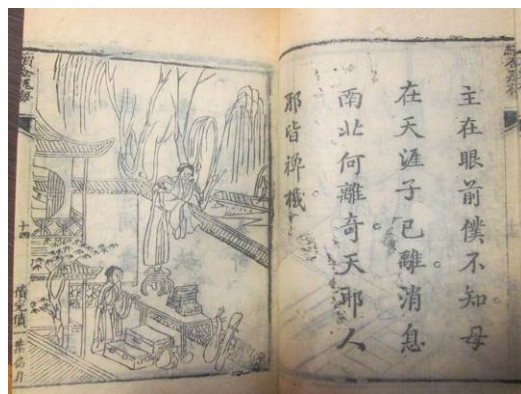 主在眼前僕不知。母
在天涯子已離。消息
南北何離奇。天耶人
耶皆禪機。
十四